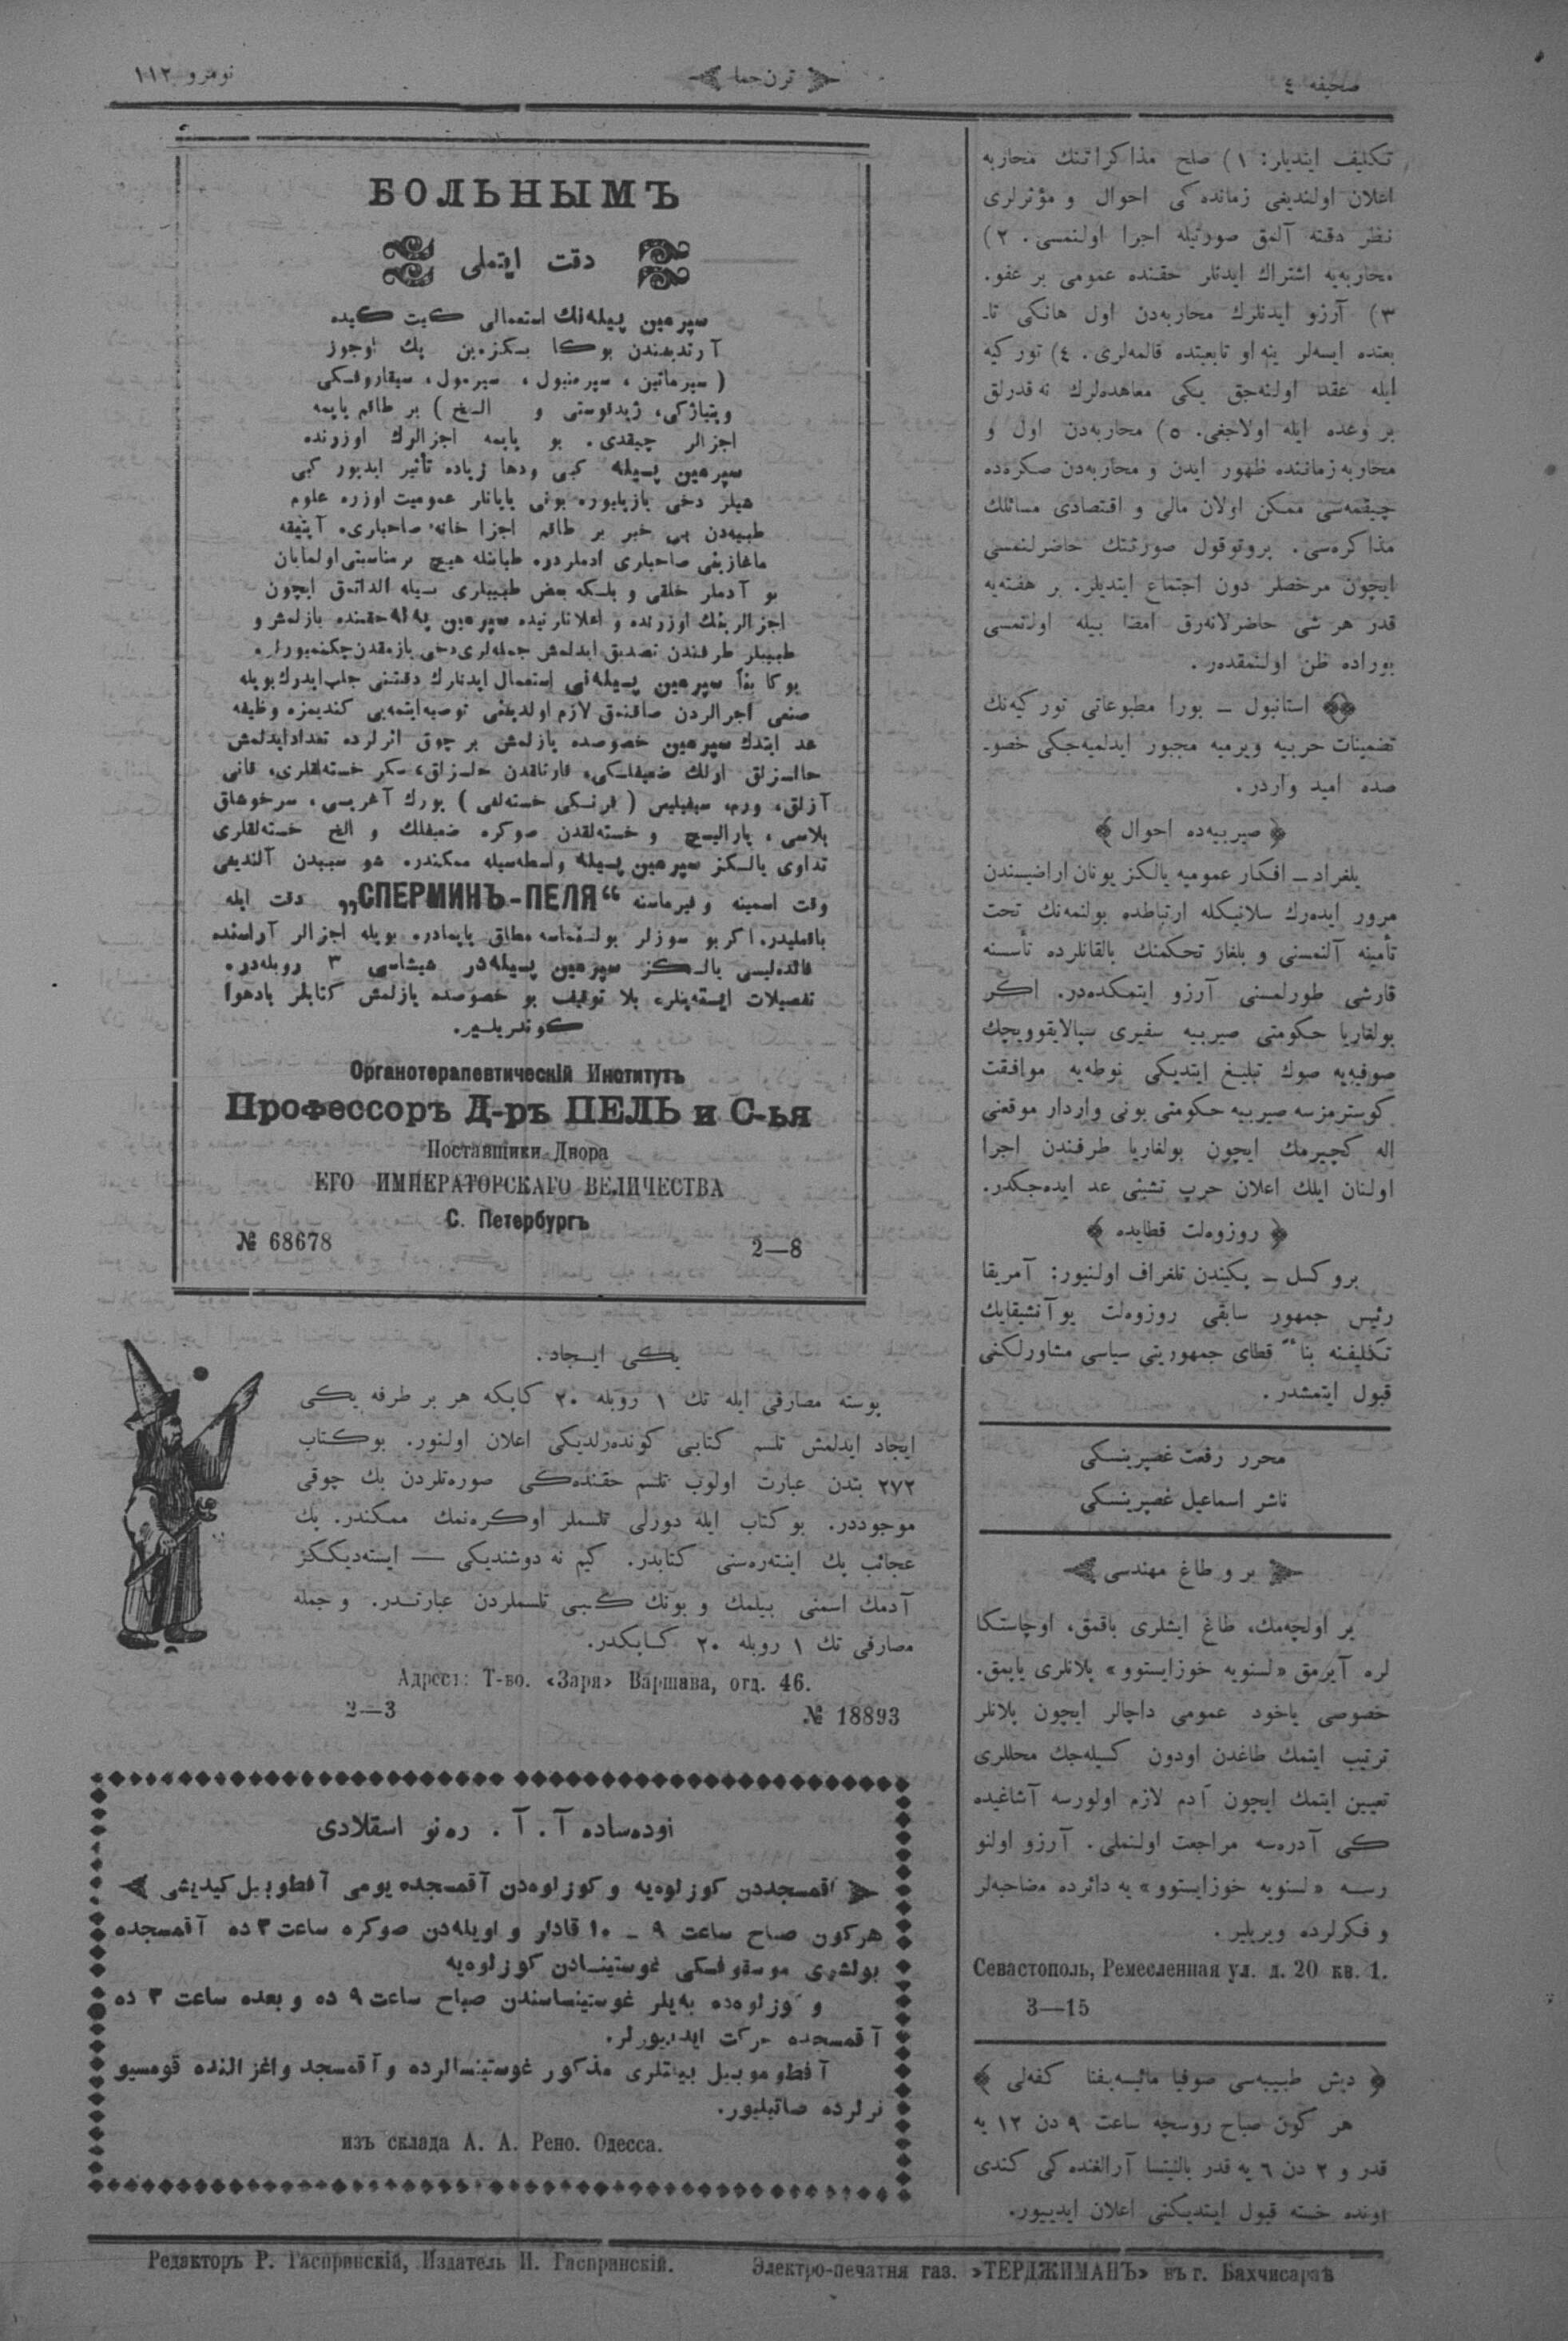 صحیفه ٤
ترن‌جما
نومرو ١١٢
تکلیف ایتدیلر: ١) صلح مذاکراتنك محاربه
اعلان اولندیغی زمانده‌کی احوال و مؤثرلری
نظر دقته آلمق صورتیله اجرا اولنمسی. ٢)
محاربه‌یه اشتراك ایدنلر حقنده عمومی بر عفو.
٣) آرزو ایدنلرك محاربه‌دن اول هانکی تا۔
بعتده ایسه‌لر ینه او تابعیتده قالمه‌لری. ٤) تورکیه
ایله عقد اولنه‌جق یکی معاهده‌لرك نه قدرلق
بر وعده ایله اولاجغی. ٥) محاربه‌دن اول و
محاربه زماننده ظهور ایدن و محاربه‌دن صکره‌ده
چیقمه‌سی ممکن اولان مالی و اقتصادی مسائلك
مذاکره‌سی. پروتوقول صورتنك حاضرلنمسی
ایچون مرخصلر دون اجتماع ایتدیلر. بر هفته‌یه
قدر هر شی حاضرلانه‌رق امضا بیله اولنمسی
بوراده ظن اولنمقده‌در.
استانبول ــ بورا مطبوعاتی تورکیه‌نك
تضمینات حربیه ویرمیه مجبور ایدلمیه‌جکی خصو۔
صده امید واردر.
﴿ صیربیه‌ده احوال ﴾
بلغراد ــ افکار عمومیه یالکز یونان اراضیسندن
مرور ایده‌رك سلانیکله ارتباطده بولنمه‌نك تحت
تأمینه آلنمسنی و بلغار تحکمنك بالقانلرده تأسسنه
قارشی طورلمسنی آرزو ایتمکده‌در. اکر
بولغاریا حکومتی صیربیه سفیری سپالایقوویچك
صوفیه‌یه صوك تبلیغ ایتدیکی نوطه‌یه موافقت
کوسترمزسه صیربیه حکومتی بونی واردار موقعنی
اله کچیرمك ایچون بولغاریا طرفندن اجرا
اولنان ایلك اعلان حرب تشبثی عد ایده‌جکدر.
﴿ روزوه‌لت قطایده ﴾
بروکسل ــ پکیندن تلغراف اولنیور: آمریقا
رئیس جمهور سابقی روزوه‌لت یوآنشیقایك
تکلیفنه بناءً قطای جمهوریتی سیاسی مشاورلکنی
قبول ایتمشدر.
محرر رفعت غصپرینسکی
ناشر اسماعیل غصپرینسکی
یر و طاغ مهندسی
یر اولچه‌مك، طاغ ایشلری باقمق، اوچاستکا
لره آیرمق «لسنویه خوزایستوو» پلانلری یاپمق.
خصوصی یاخود عمومی داچالر ایچون پلانلر
ترتیب ایتمك طاغدن اودون کسیله‌جك محللری
تعیین ایتمك ایچون آدم لازم اولورسه آشاغیده
کی آدره‌سه مراجعت اولنملی. آرزو اولنو
رسه «لسنویه خوزایستوو» یه دائرده مصاحبه‌لر
و فکرلرده ویریلیر.
Севастополь, Ремесленная ул. д. 20 кв. 1.
3—15
﴿ دیش طبیبه‌سی صوفیا کفه‌لی ﴾
هر کون صباح روسچه ساعت ٩ دن ١٢ یه
قدر و ٢ دن ٦ یه قدر آرالغنده‌کی کندی
اونده خسته قبول ایتدیکنی اعلان ایدییور.
БОЛЬНЫМЪ
دقت ایتملی
سپرمین پیله‌نك استعمالی کیت کیده
آرتدیغندن بوکا بکزه‌ین پك اوجوز
ویتباژکی، و الخ ) بر طاقم یاپمه
اجزالر چیقدی. بو یاپمه اجزالرك اوزرنده
سپرمین پیله کبی ودها زیاده تأثیر ایدیور کبی
شیلر دخی یازیلیور. بونی یاپانلر عمومیت اوزره علوم
طبیه‌دن بی خبر بر طاقم اجزا خانه صاحبلری. آپتیقه
ماغازینی صاحبلری ادملردر. طبابتله هیچ بر مناسبتی اولمایان
بو آدملر خلقی و بلکه بعض طبیبلری بیله الداتمق ایچون
اجزالرینك اوزرنده و اعلانلرنیده سپرمین پیله حقنده یازلمش و
طبیبلر طرفندن تصدیق ایدلمش جمله‌لری دخی یازمقدن چکنمیورلر.
بوکا بناً سپرمین پیله‌نی استعمال ایدنلرك دقتنی جلب ایدرك بویله
صنعی اجزالردن صاقنمق لازم اولدیغنی توصیه ایتمه‌یی کندیمزه وظیفه
عد ایتدك سپرمین خصوصده یازلمش بر چوق اثرلرده تعداد ایدلمش
حالسزلق خسته‌لقلری، قانی
آزلق، ورم، سیفیلیس ( فرنکی خسته‌لغی ) یورك آغریسی، سرخوشلق
بلاسی، پارالیچ و خسته‌لقدن صوکره ضعیفلك و الخ خسته‌لقلری
تداوی یالکز سپرمین پیله واسطه‌سیله ممکندر. شو سببدن آلندیغی
وقت اسمینه و فیرماسنه “СПЕРМИНЪ-ПЕЛЯ„ دقت ایله
باقملیدر. اکر بو سوزلر بولنمماسه مطلق یاپمادر. بویله اجزالر آراسنده
فائده‌لیسی یالکز سپرمین پیله‌در شیشاسی ٣ روبله‌در.
تفصیلات ایسته‌ینلره بلا توقیف بو خصوصده یازلمش کتابلر بادهوا
کوندریلیر.
Органотерапевтическій Институтъ
Профессоръ Д-ръ ПЕЛЬ и С-ья
Поставщики Двора
ЕГО ИМПЕРАТОРСКАГО ВЕЛИЧЕСТВА
С. Петербургъ
№ 68678
2—8
یکی ایجاد.
پوسته مصارفی ایله تك ١ روبله ٢٠ کاپکه هر بر طرفه یکی
ایجاد ایدلمش تلسم کتابی کونده‌رلدیکی اعلان اولنور. بو کتاب
٢٧٢ بتدن عبارت اولوب تلسم حقنده‌کی صوره‌تلردن پك چوقی
موجوددر. بو کتاب ایله دورلی تلسملر اوکره‌نمك ممکندر. پك
عجائب پك اینته‌ره‌سنی کتابدر. کیم نه دوشندیکی — ایسته‌دیککز
آدمك اسمنی بیلمك و بونك کبی تلسملردن عبارتدر. و جمله
مصارفی تك ١ روبله ٢٠ کاپکدر.
Адресъ: Т-во. «Заря» Варшава, отд. 46.
2—3
№ 18893
اوده‌ساده آ. آ. ره‌نو اسقلادی
اقمسجددن کوزلوه‌یه و کوزلوه‌دن آقمسجده یومی آفطوبیل کیدیشی
هرکون صباح ساعت ٩ ــ ١٠ قادار و اویله‌دن صوکره ساعت ٣ ده آقمسجده
بولشوی موسقوفسکی غوستینسادن کوزلوه‌یه
و کوزلوه‌ده به‌یلر غوستینساسندن صباح ساعت ٩ ده و بعده ساعت ٣ ده
آقمسجده حرکت ایدییورلر.
آفطوموبیل بیلتلری مذکور غوستینسالرده و آقمسجد واغزالنده قومسیو
نرلرده صاتیلیور.
изъ склада А. А. Рено. Одесса.
Редакторъ Р. Гаспринскій, Издатель И. Гаспринскій.
Электро-печатня газ. »ТЕРДЖИМАНЪ» въ г. Бахчисараѣ